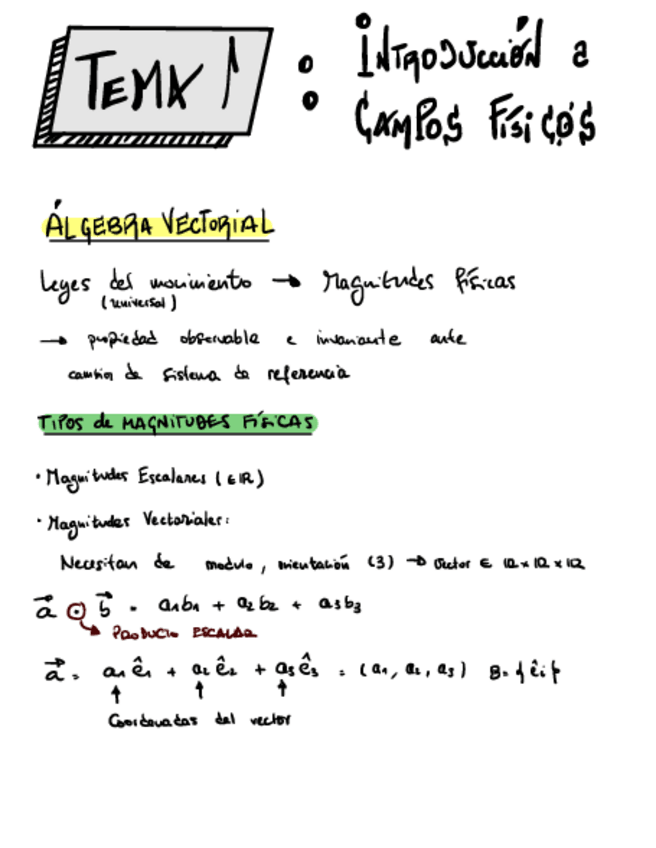 TEMA 1 : INTRODUCCIÓN a
CAMPOS FÍSICOS
ÁLGEBRA VECTORIAL
Leyes del movimiento → Magnitudes físicas
(universal)
→ propiedad observable e invariante ante
cambios de sistema de referencia
TIPOS de MAGNITUDES FÍSICAS
· Magnitudes Escalares (∈ ℝ)
· Magnitudes Vectoriales:
Necesitan de modulo, orientación (3) → Vector ∈ ℝ x ℝ x ℝ
a⃗ ⊙ b⃗ = a₁b₁ + a₂b₂ + a₃b₃
↳ PRODUCTO ESCALAR
a⃗ = a₁ ê₁ + a₂ ê₂ + a₃ ê₃ = (a₁, a₂, a₃) B = {êi}
↑ ↑ ↑
Coordenadas del vector